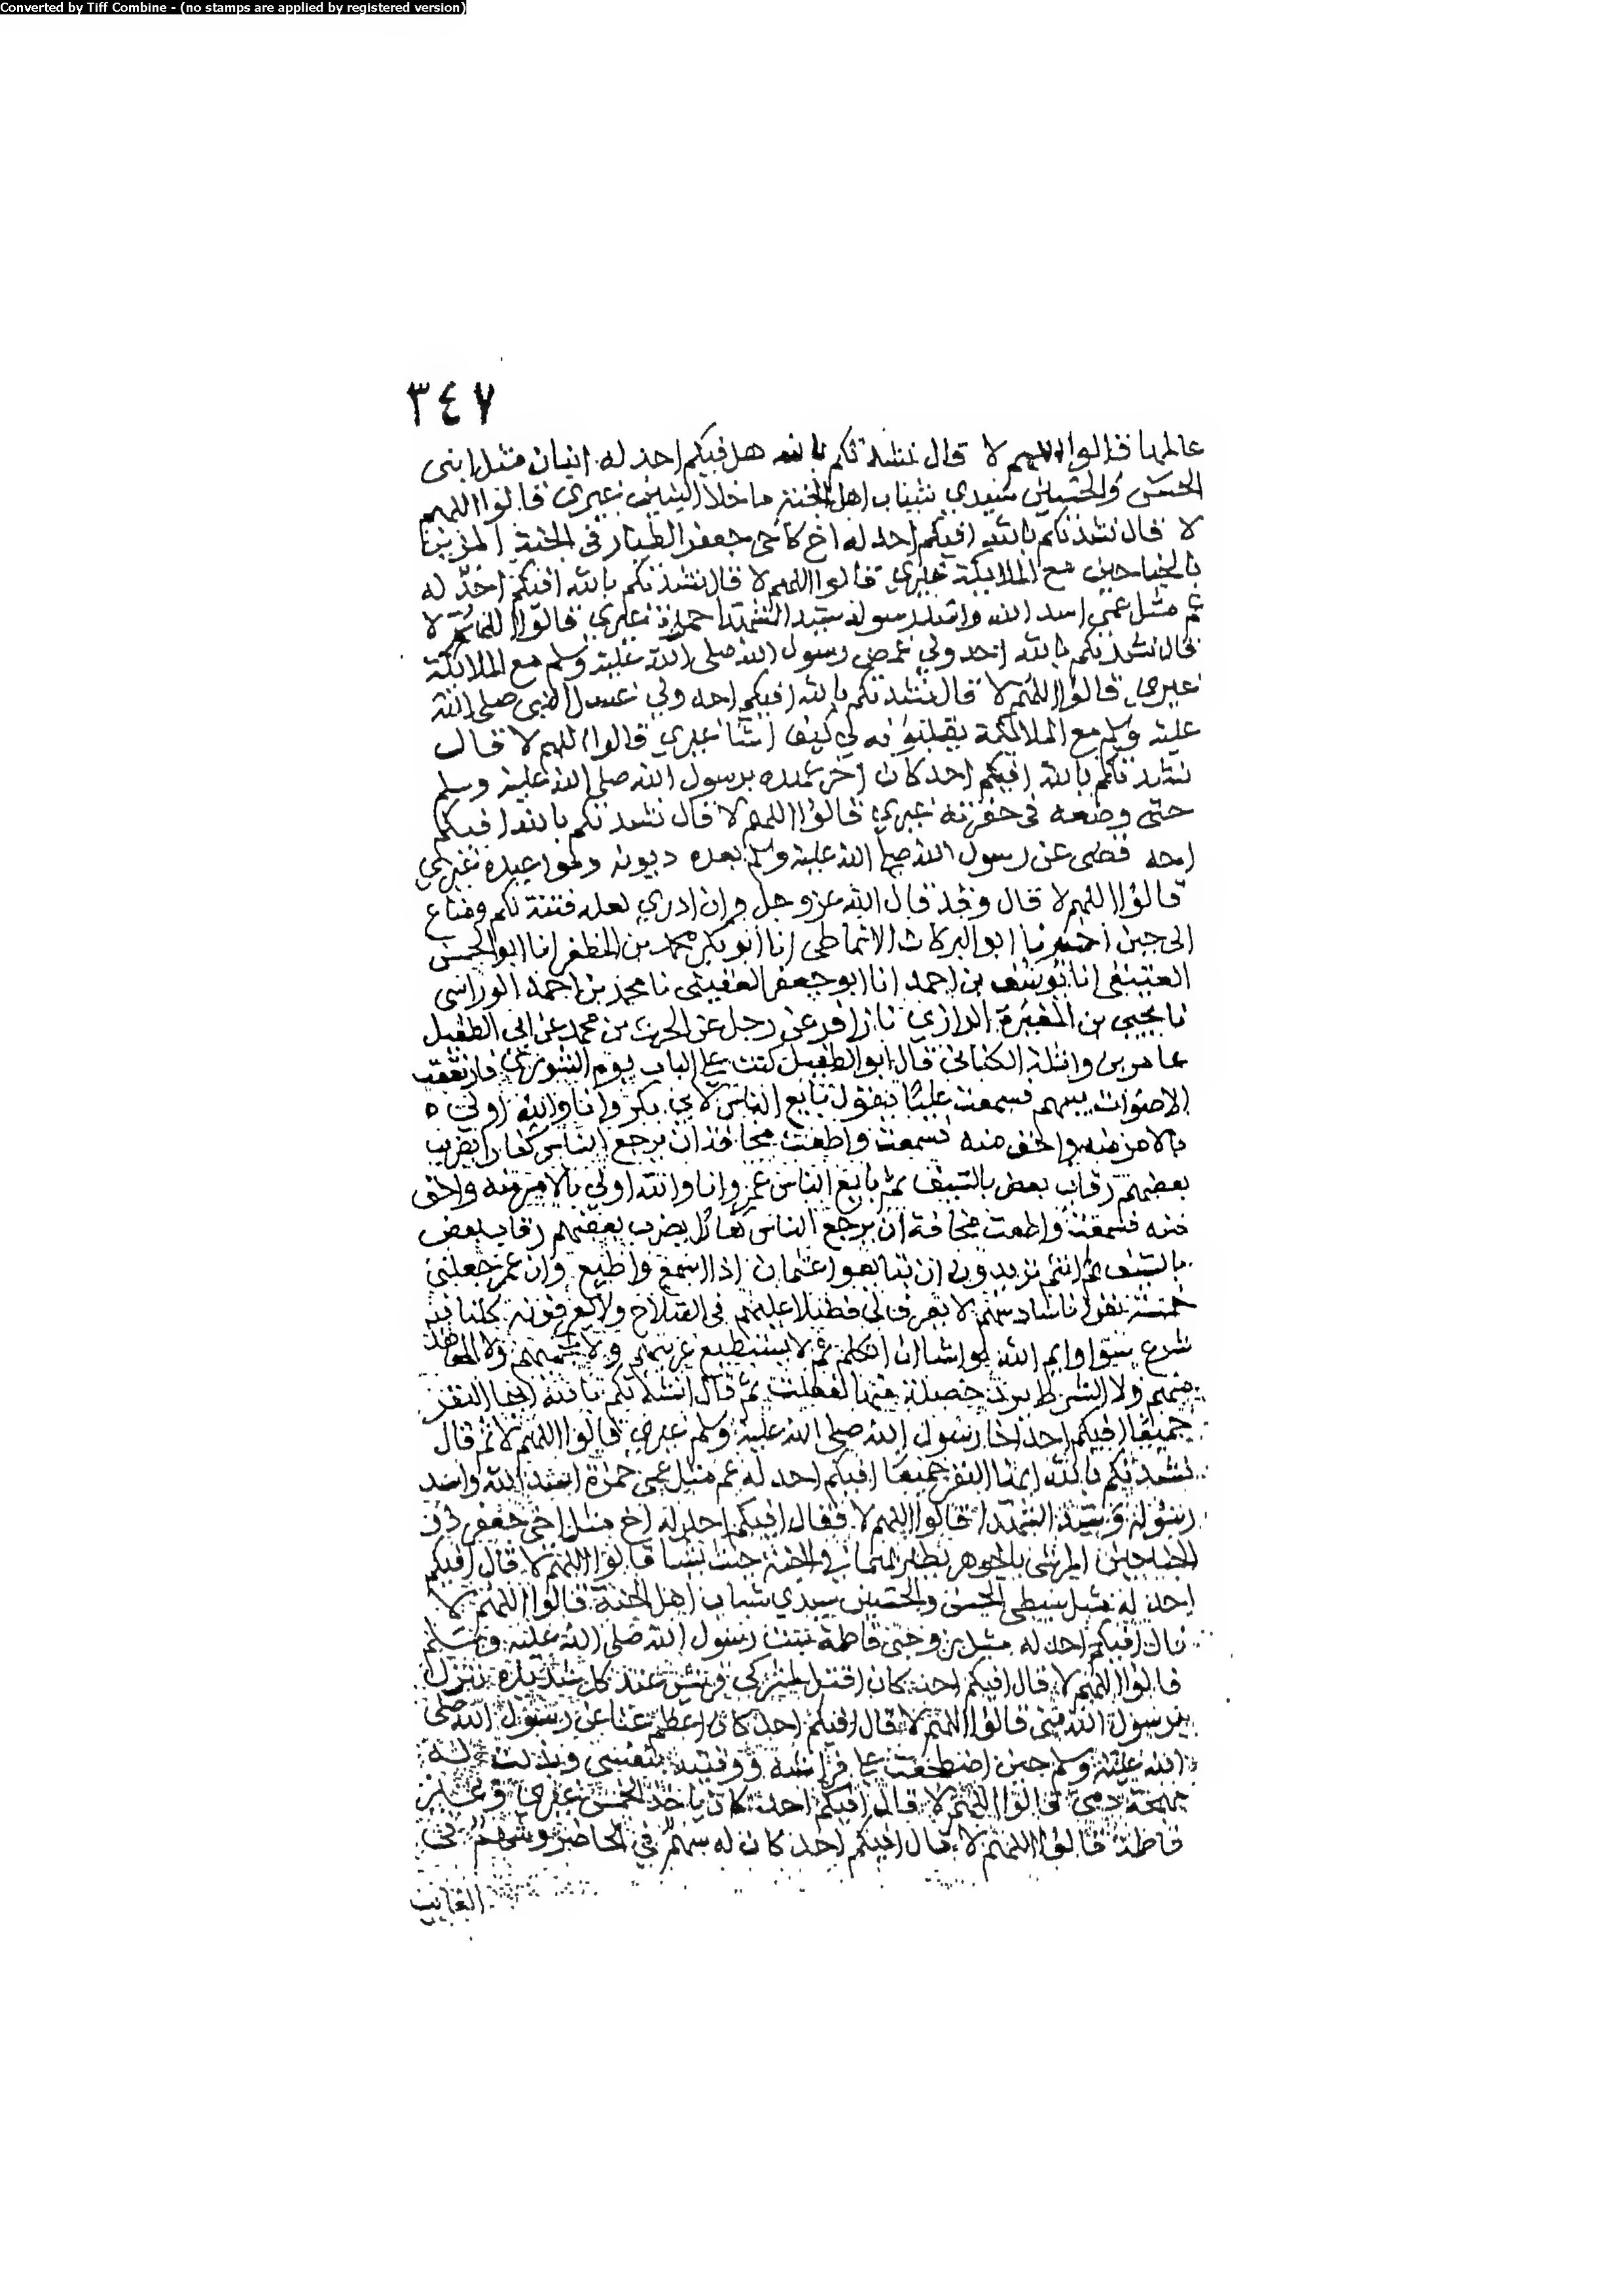 Converted by Tiff Combine - (no stamps are applied by registered version)
٣٤٧
عالمها قالوا اللهم لا قال نشدتكم بالله هل فيكم احد له ابنان مثل ابنى
الحسن والحسين سيدي شباب اهل الجنة ما خلا النبيين غيري قالوا اللهم
لا قال نشدتكم بالله افيكم احد له اخ كاخى جعفر الطيار فى الجنة المزين
بالجناحين مع الملايكة غيري قالوا اللهم لا قال نشدتكم بالله افيكم احد له
عم مثل عمى اسد الله واسد رسوله سيد الشهدا حمزة غيري قالوا اللهم لا
قال نشدتكم بالله احد ولي غمض رسول الله صلى الله عليه وسلم مع الملائكة
غيري قالوا اللهم لا قال نشدتكم بالله افيكم احد ولي غسل النبى صلى الله
عليه وسلم مع الملائكة يقلبونه لي كيف اشا غيري قالوا اللهم لا قال
نشدتكم بالله افيكم احد كان اخر عهده برسول الله صلى الله عليه وسلم
حتى وضعه فى حفرته غيري قالوا اللهم لا قال نشدتكم بالله افيكم
احد قضى عن رسول الله صلى الله عليه وسلم بعده ديونه ومواعيده غيري
قالوا اللهم لا قال وقد قال الله عز وجل وان ادري لعله فتنة لكم ومتاع
الى حين اخبرنا ابو البركات الانماطى انا ابو بكر محمد بن المظفر انا ابو الحسن
العتيقى انا يوسف بن احمد انا ابو جعفر العقيلى نا محمد بن احمد الوراسى
نا يحيى بن المغيرة الرازي نا زافر عن رجل عن الحرث بن محمد عن ابي الطفيل
عامر بن واثلة الكنانى قال ابو الطفيل كنت على الباب يوم الشورى فارتفعت
الاصوات بينهم فسمعت عليا يقول بايع الناس لابي بكر وانا والله اولى ه
بالامر منه واحق منه فسمعت واطعت مخافة ان يرجع الناس كفارا يضرب
بعضهم رقاب بعض بالسيف ثم بايع الناس عمر وانا والله اولى بالامر منه واحق
منه فسمعت واطعت مخافة ان يرجع الناس كفارا يضرب بعضهم رقاب بعض
بالسيف ثم انتم تريدون ان تبايعوا عثمان اذا اسمع واطيع وان عمر جعلنى
خمسة نفر انا سادسهم لا يعرف لى فضلا عليهم فى الصلاح ولا يعرفونه كلنا فيه
شرع سوا وايم الله لو اشا ان اتكلم ثم لا يستطيع عربيهم ولا عجميهم ولا المعاهد
منهم ولا المشرك رد خصلة منها لفعلت ثم قال انشدتكم بالله ايها النفر
جميعا افيكم احد اخا رسول الله صلى الله عليه وسلم غيري قالوا اللهم لا ثم قال
نشدتكم بالله ايها النفر جميعا افيكم احد له عم مثل عمى حمزة اسد الله واسد
رسوله وسيد الشهدا قالوا اللهم لا فقال افيكم احد له اخ مثل اخى جعفر ذى
الجناحين الموشى بالجوهر يطير بهما فى الجنة حيث يشا قالوا اللهم لا قال افيكم
احد له مثل سبطى الحسن والحسين سيدي شباب اهل الجنة قالوا اللهم لا
قال افيكم احد له مثل زوجتى فاطمة بنت رسول الله صلى الله عليه وسلم
قالوا اللهم لا قال افيكم احد كان اقتل لمشركى قريش عند كل شديدة تنزل
برسول الله منى قالوا اللهم لا قال افيكم احد كان اعظم غنا عن رسول الله صلى
الله عليه وسلم حين اضطجعت على فراشه ووقيته بنفسى وبذلت له
مهجة دمى قالوا اللهم لا قال افيكم احد كان ياخذ الخمس غيري وغير
فاطمة قالوا اللهم لا قال افيكم احد كان له سهم في الحاضر وسهم فى
الغايب